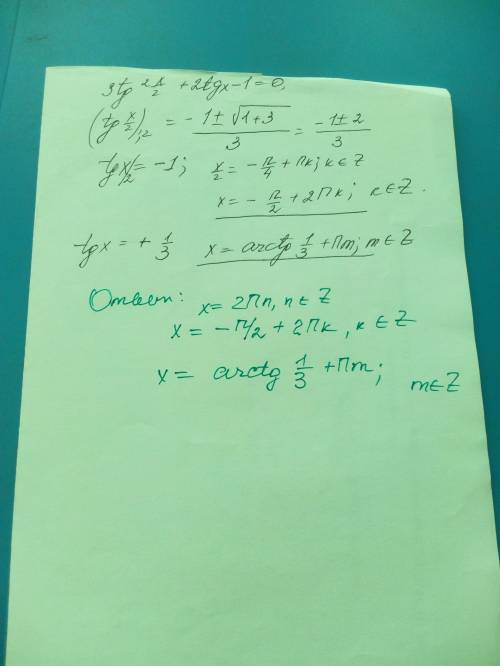 3tg² x/2 + 2tgx - 1 = 0,
(tg x/2)₁,₂ = (-1 ± √(1+3))/3 = (-1 ± 2)/3
tg x/2 = -1; x/2 = -π/4 + πk; k ∈ Z
x = -π/2 + 2πk; k ∈ Z.
tgx = + 1/3 x = arctg 1/3 + πm; m ∈ Z
Ответ: x = 2πn, n ∈ Z
x = -π/2 + 2πk, k ∈ Z
x = arctg 1/3 + πm; m ∈ Z